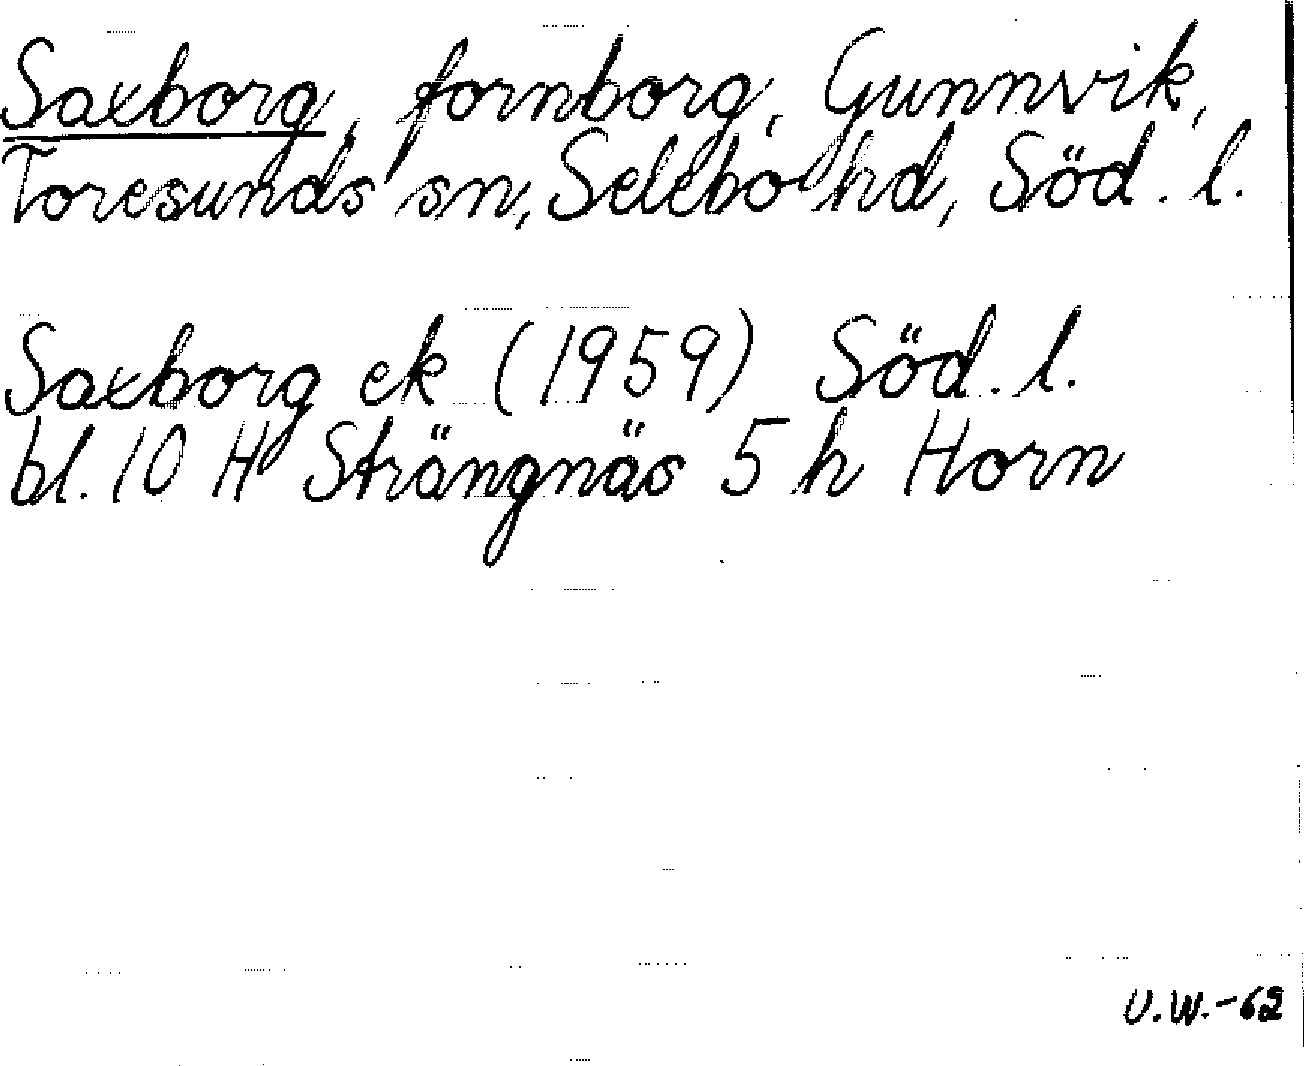 Saxborg, fornborg, Gunnvik,
Toresunds sn, Selebo hd, Söd. l.
Saxborg ek (1959) Söd. l.
bl. 10 H Strängnäs 5 h Horn
U.W.-62